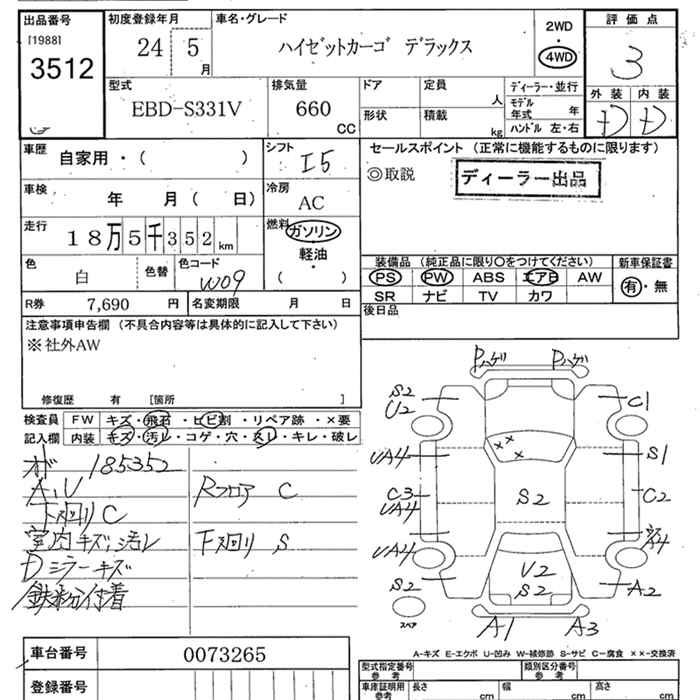 出品番号 初度登録年月 車名・グレード 2WD 評価点
[1988] 24 5 ハイゼットカーゴ デラックス ・
3512 月 4WD 3
型式 排気量 ドア 定員 ディーラー・並行 外装 内装
EBD-S331V 660 人 モデル年式 年 D D
CC 形状 積載 kg ハンドル 左・右
車歴 自家用・( ) シフト I5 セールスポイント (正常に機能するものに限ります)
◎取説 ディーラー出品
車検 年 月( 日) 冷房 AC
走行 18万5千352km 燃料 ガソリン・
軽油・
( )
色 白 色替 色コード W09 装備品 (純正品に限り○をつけてください) 新車保証書
PS PW ABS エアB AW 有・無
SR ナビ TV カワ
R券 7,690 円 名変期限 月 日 後日品
注意事項申告欄 (不具合内容等は具体的に記入して下さい)
※社外AW
修復歴 有 [箇所 ]
検査員 FW キズ・飛石・ヒビ割・リペア跡・×要
記入欄 内装 キズ・汚レ・コゲ・穴・スレ・キレ・破レ
185352
A,U Rフロア C
下廻リ C
室内キズ、汚レ 下廻リ S
Dミラーキズ
鉄粉付着
Pハゲ Pハゲ
S2 U2 C1
UA4 S1
C3 UA4 S2 C2
UA4
S2 U2 S2 A2
スペア A1 A3
A-キズ E-エクボ U-凹み W-補修跡 S-サビ C-腐食 ××-交換済
車台番号 0073265
登録番号
型式指定番号 参考 類別区分番号 参考
車庫証明用 参考 長さ cm 幅 cm 高さ cm